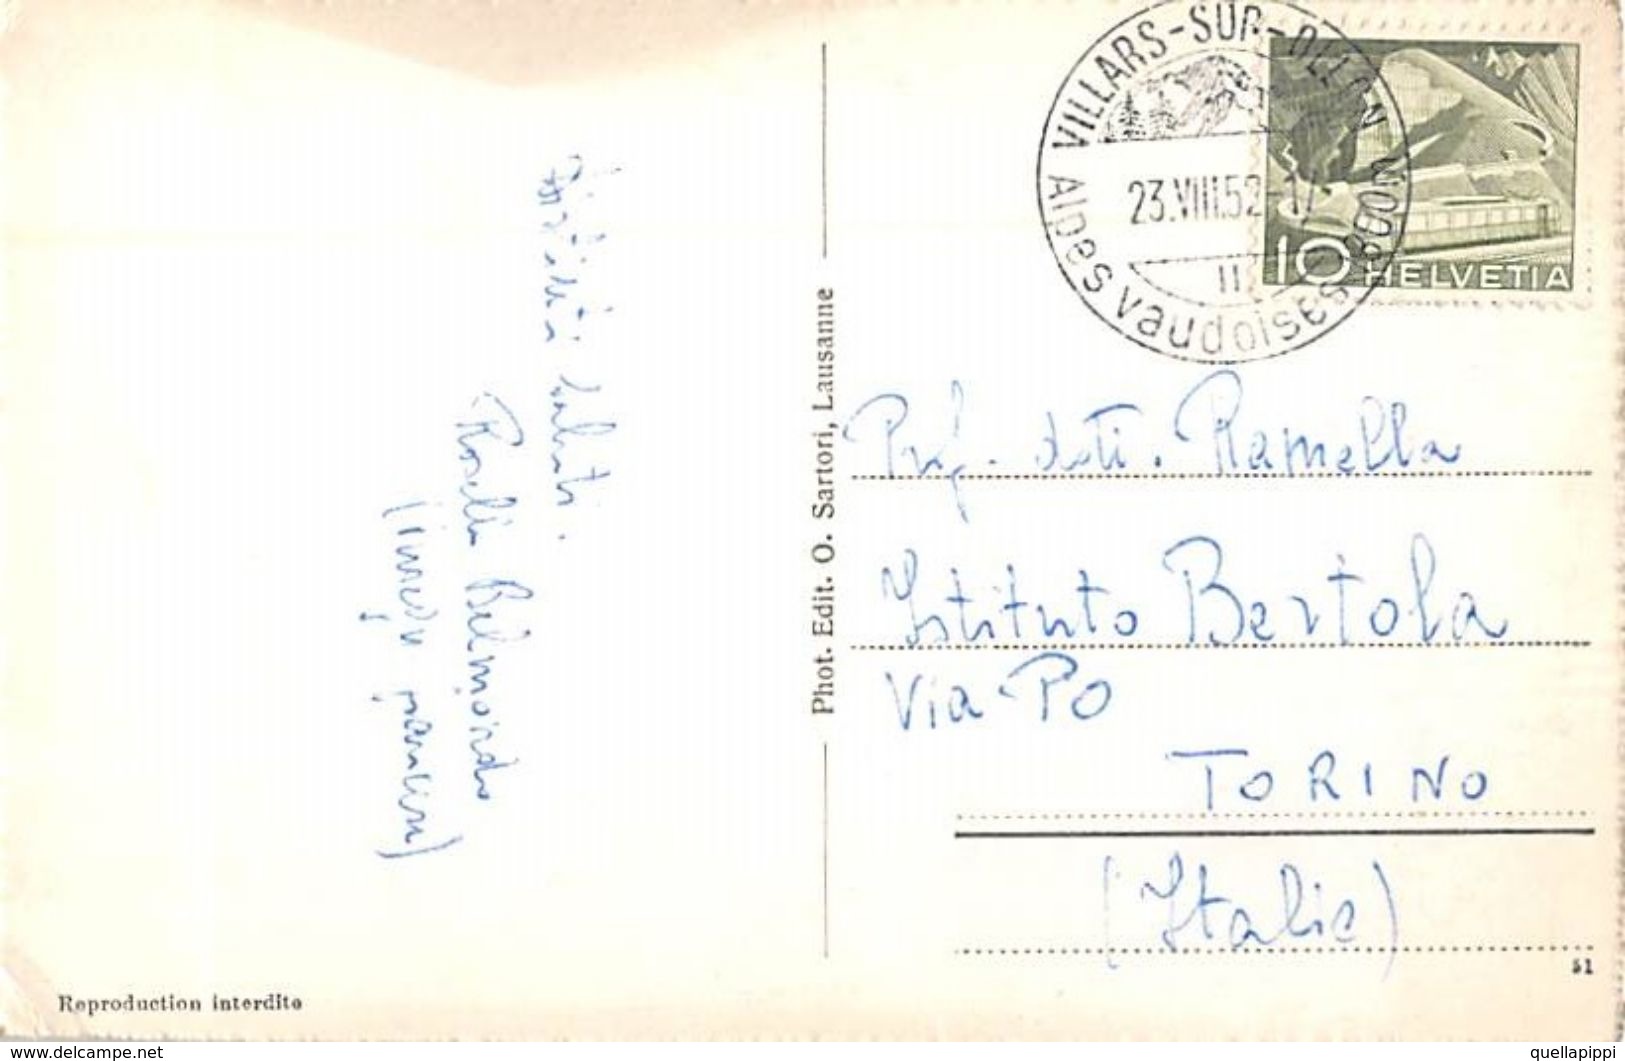 VILLARS-SUR-OLLON
23.VIII.52-17
Alpes vaudoises 1300m
II
10 HELVETIA
Distinti saluti.
Roselli Belmondo
Phot. Edit. O. Sartori, Lausanne
Prof. dott. Ramella
Istituto Bertola
Via Po
TORINO
(Italia)
51
Reproduction interdite
www.delcampe.net
quellapippi